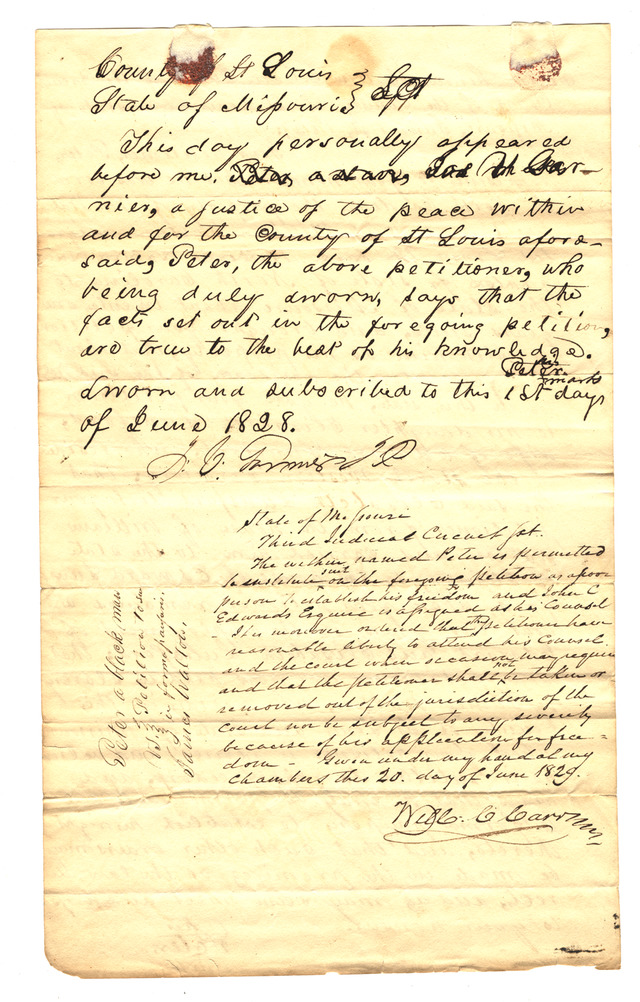 County of St Louis } Sct
State of Missouri
This day personally appeared
before me, Peter, a slave,
nier, a justice of the peace within
and for the County of St Louis afore-
said, Peter, the above petitioner, who
being duly sworn, says that the
facts set out in the foregoing petition,
are true to the best of his knowledge.
Peter his
x mark
Sworn and subscribed to this 1st day
of June 1828.
J. P.
State of Missouri
Third Judicial Circuit Sct.
The within named Peter is permitted
to institute suit on the foregoing petition as a poor
person to establish his freedom and John C
Edwards Esquire is assigned as his Counsel
- It is moreover ordered that the petitioner have
reasonable liberty to attend his Counsel
and the court when occasion may require
and that the petitioner shall not be taken or
removed out of the jurisdiction of the
Court nor be subject to any severity
because of his application for free=
dom - Given under my hand at my
Chambers this 20. day of June 1829.
Will. C Carr
Peter a black man
Vs } Petition to sue
in forma pauperis.
James Walton.